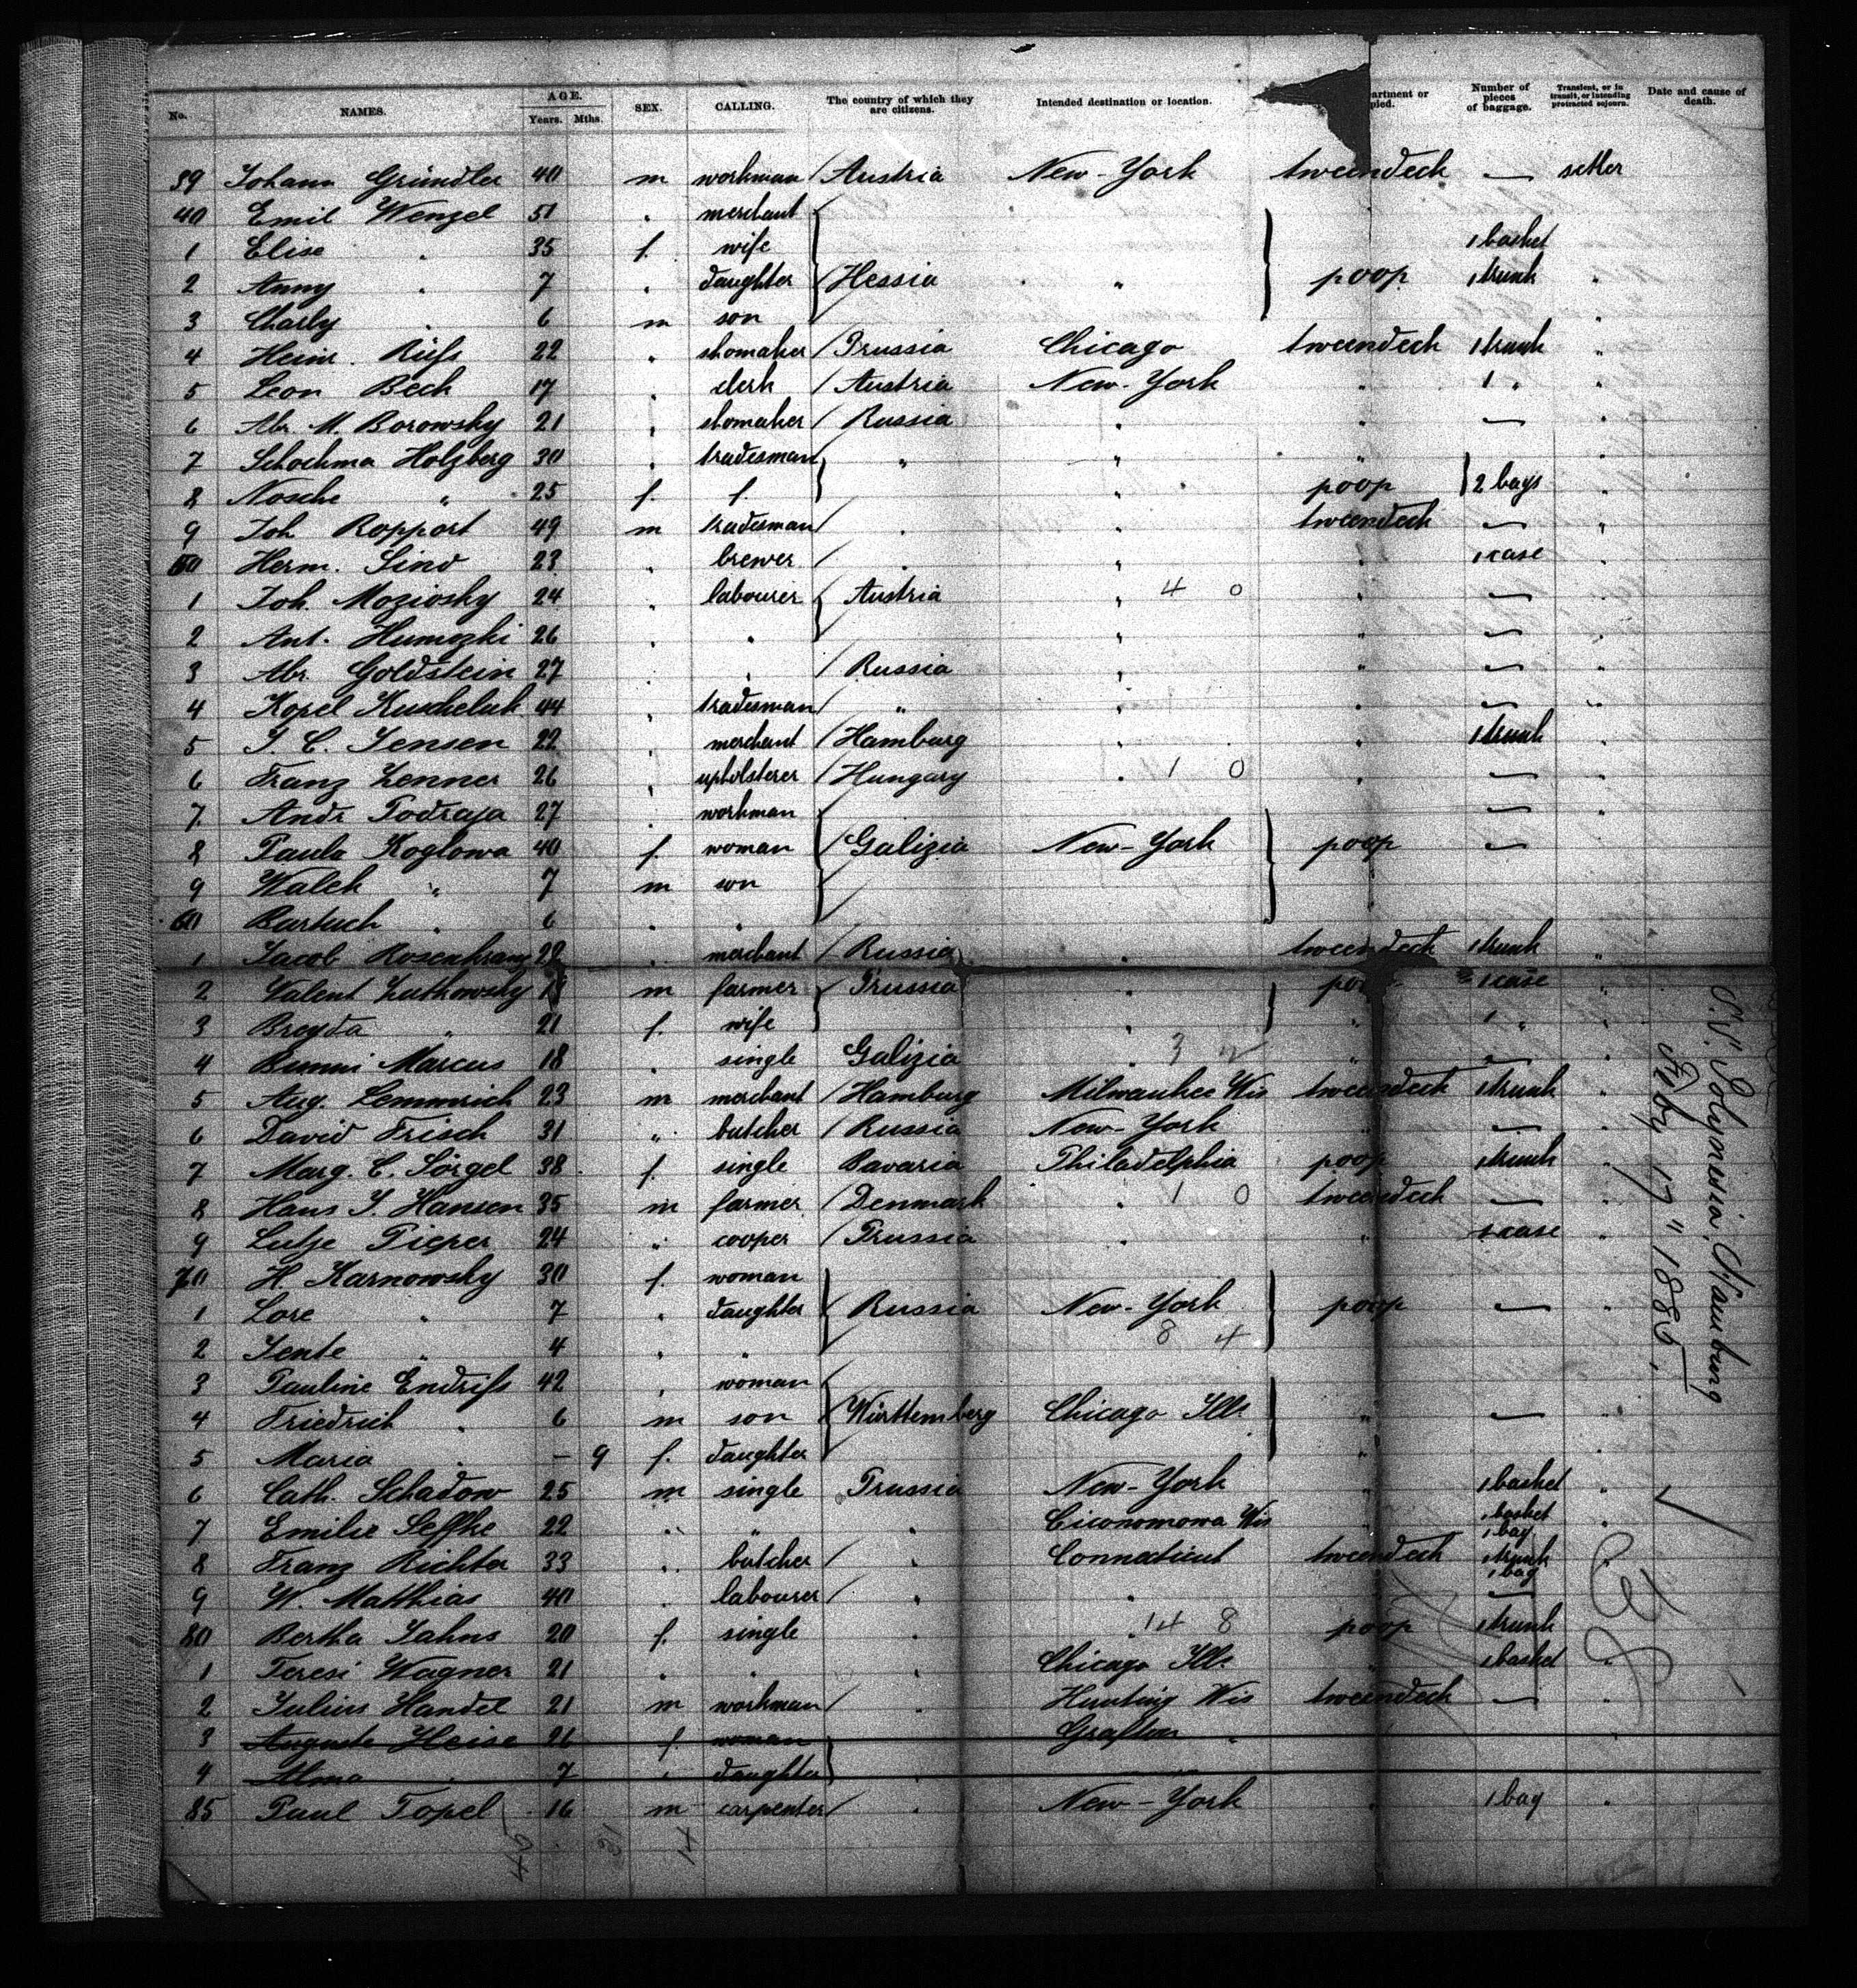 No. NAMES. AGE. Years. Mths. SEX. CALLING. The country of which they are citizens. Intended destination or location. artment or pied. Number of pieces of baggage. Transient, or in transit, or intending protracted sojourn. Date and cause of death.
39 Johann Gründler 40 m workman / Austria New-York tweendeck — setler
40 Emil Wenzel 51 " merchant
1 Elise " 35 f. wife 1 basket
2 Anny " 7 " daughter Hessia " poop 1 trunk "
3 Charly " 6 m son "
4 Heinr. Rüfs 22 " shomaker / Prussia Chicago tweendeck 1 trunk "
5 Leon Beck 17 " clerk / Austria New-York " 1 " "
6 Abr. M. Borowsky 21 " shomaker / Russia " " — "
7 Schochma Holzberg 30 " tradesman " " " "
8 Nosche " 25 f. f. " poop 2 bags "
9 Joh Ropport 49 m tradesman / " " tweendeck — "
50 Herm. Sind 23 " brewer / " " " 1 case "
1 Joh. Moziosky 24 " labourer Austria " 4 0 " — "
2 Ant. Humezki 26 " " " " — "
3 Abr. Goldstein 27 " " / Russia " " — "
4 Kopel Kuscheluk 44 " tradesman / " " " — "
5 J. C. Jensen 22 " merchant / Hamburg " " 1 trunk "
6 Franz Zenner 26 " upholsterer / Hungary " 1 0 " — "
7 Andr Podraja 27 " workman / — "
8 Paula Koglowa 40 f. woman / Galizia New-York poop —
9 Walek " 7 m son /
60 Bartuch " 6 " "
1 Jacob Rosenkranz 28 " merchant / Russia " tweendeck 1 trunk "
2 Valent Lutkowsky m farmer Prussia " poop 1 case "
3 Brogda " 21 f. wife " " 1 " "
4 Bunni Marcus 18 " single Galizia " 3 2 " — "
5 Aug. Lemmrich 23 m merchant / Hamburg Milwaukee Wis tweendeck 1 trunk "
6 David Frisch 31 " butcher / Russia New-York " — "
7 Marg. C. Sörgel 38 f. single Bavaria Philadelphia poop 1 trunk "
8 Hans J. Hansen 35 m farmer / Denmark " 1 0 tweendeck — "
9 Lutje Pieper 24 " cooper / Prussia " " 1 case "
70 H. Karnowsky 30 f. woman
1 Lore " 7 " daughter Russia New-York poop — "
2 Jente " 4 " " 8 4 "
3 Pauline Endrifs 42 " woman / "
4 Friedrich " 6 m son / Württemberg Chicago Ill. " — "
5 Maria " — 9 f. daughter " "
6 Cath. Schadow 25 m single Prussia New-York " 1 basket "
7 Emilie Seffke 22 " " " Ciconomowa Wis " 1 basket 1 bag "
8 Franz Richter 33 " butcher / " Connecticut tweendeck 1 trunk 1 bag
9 W. Matthias 40 " labourer / " " —
80 Bertha Jahns 20 f. single " " 14 8 poop 1 trunk
1 Teresi Wagner 21 " " " Chicago Ill. " 1 basket "
2 Julius Handel 21 m workman / " Hunting Wis tweendeck — "
3 Auguste Heise 26 f. woman " Grafton " "
4 Alma " 7 " daughter "
85 Paul Topel 16 m carpenter / " New-York " 1 bag "
S.S. Polynesia, Hamburg
Feby 17" 1885,